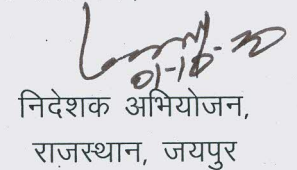 01-10-20
निदेशक अभियोजन,
राजस्थान, जयपुर